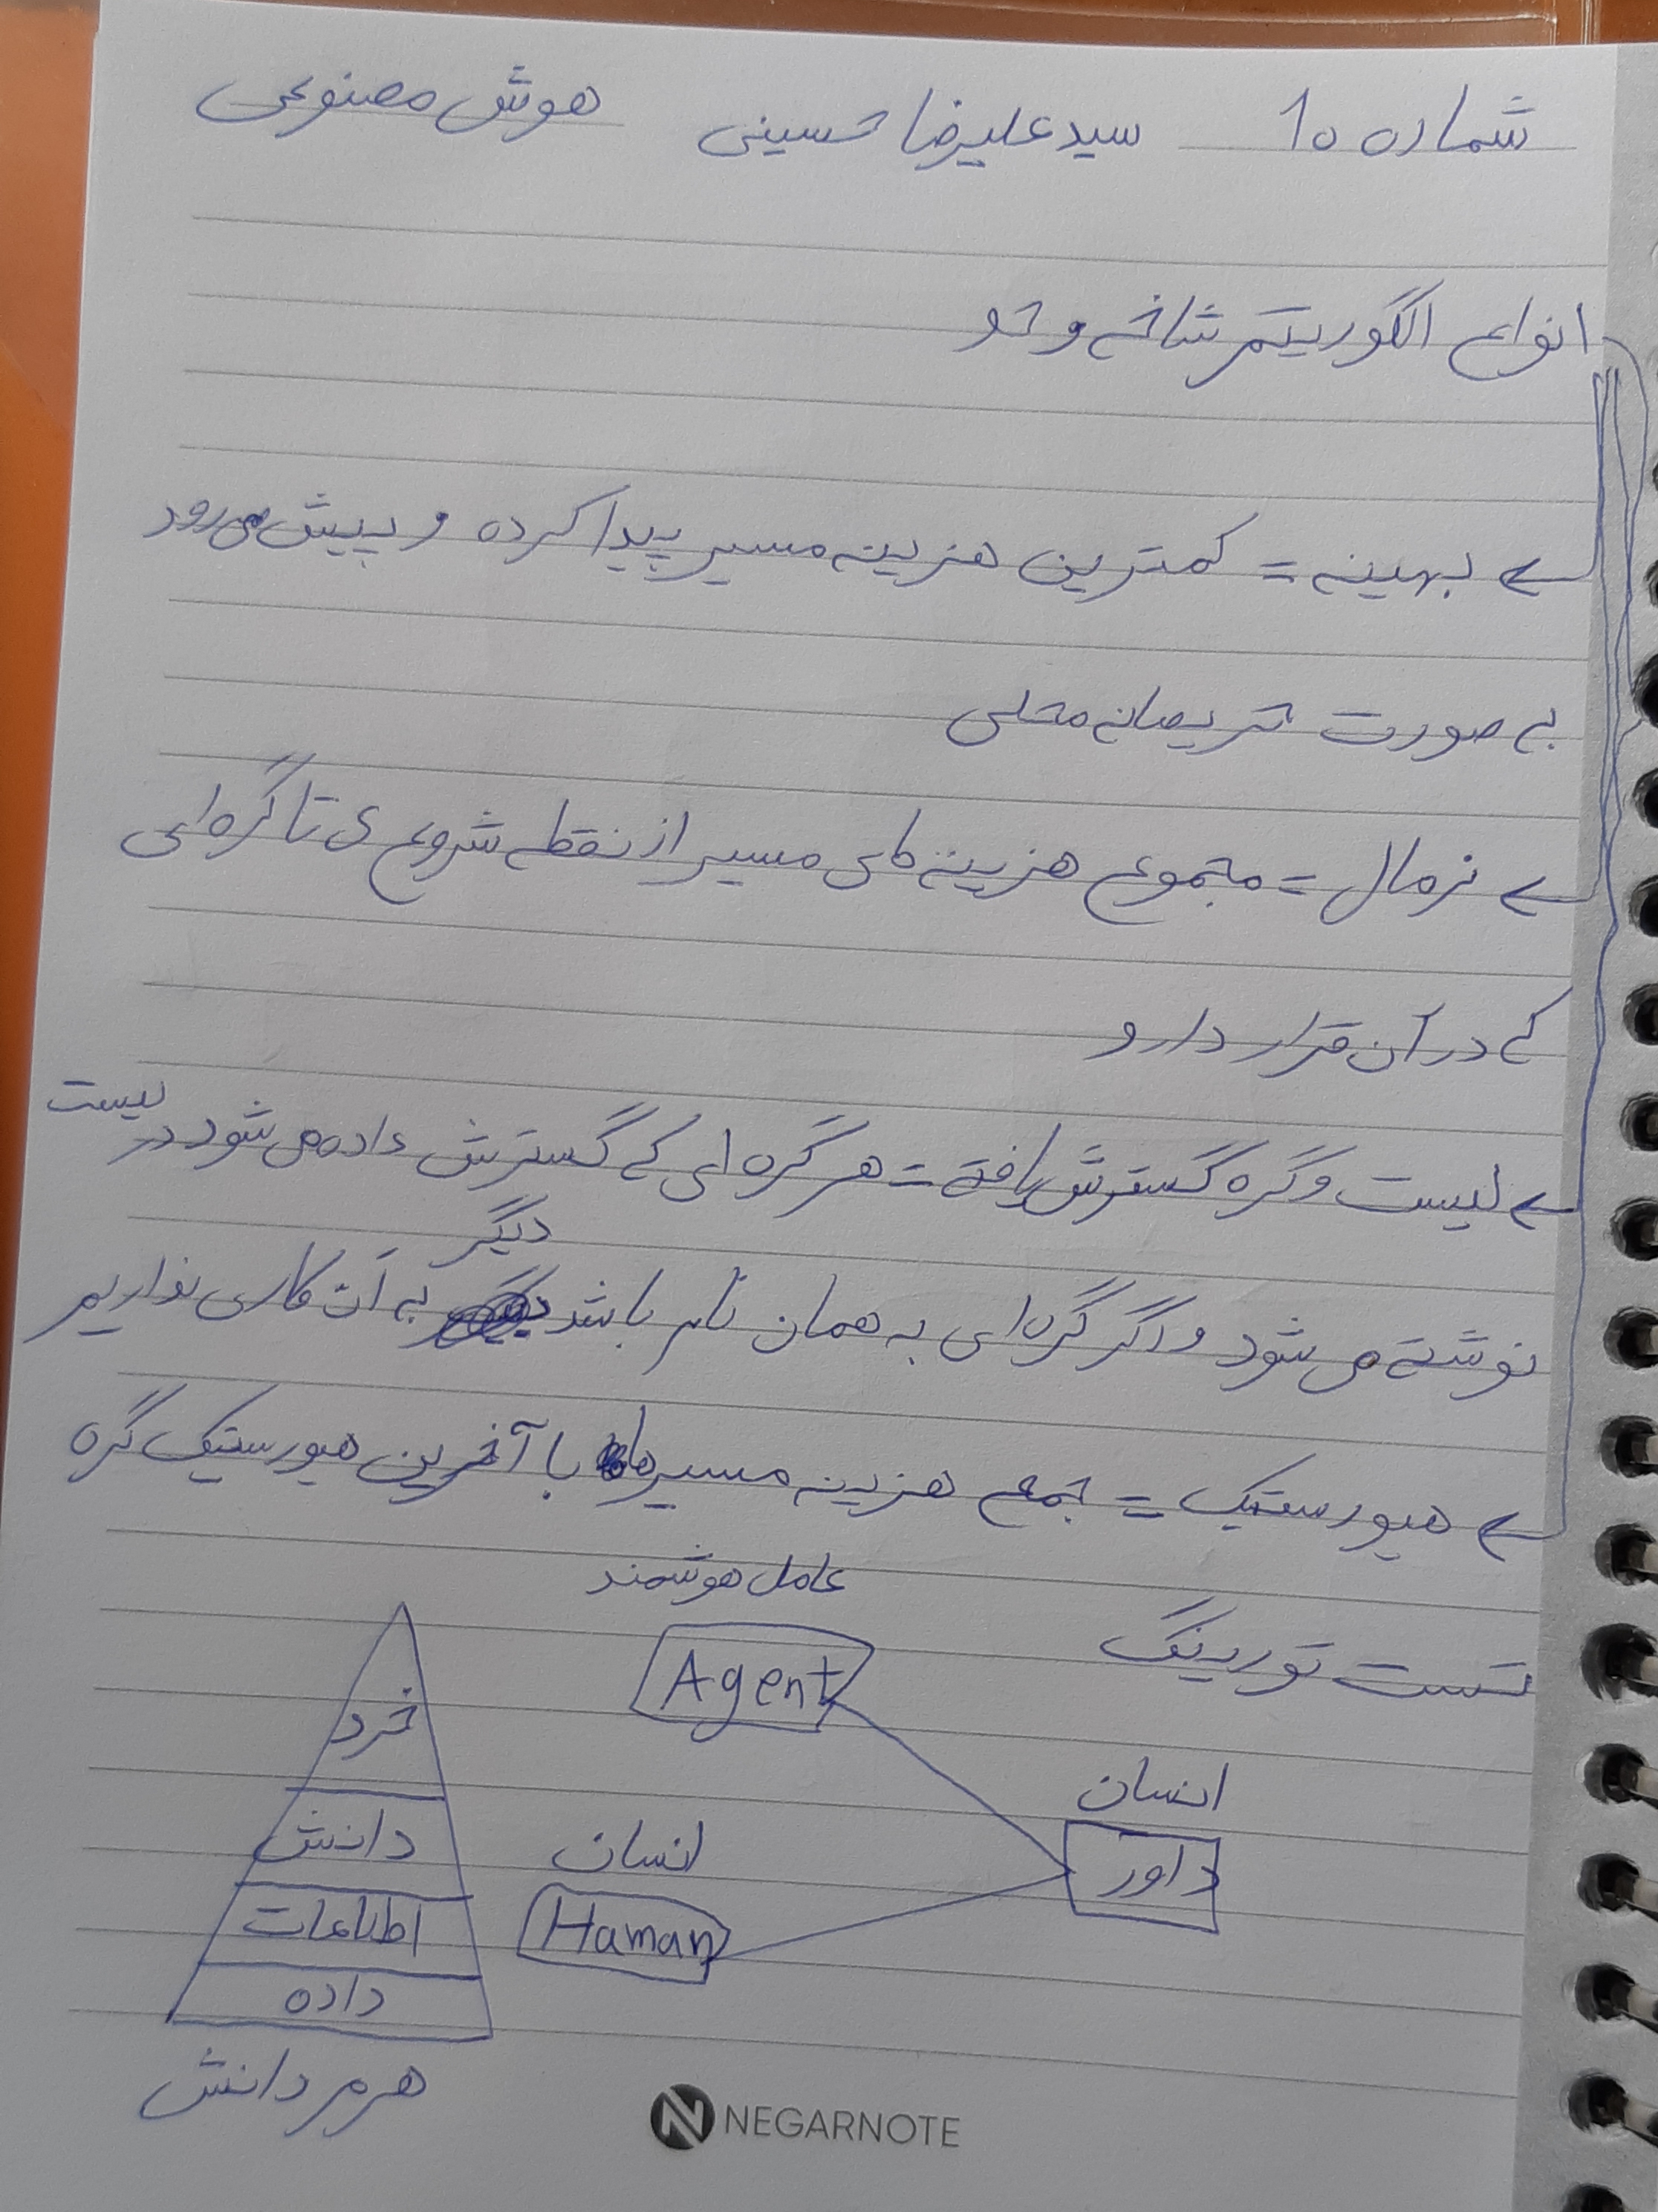 شماره ۱۰ سید علیرضا حسینی هوش مصنوعی
انواع الگوریتم شاخه و حد
بهینه = کمترین هزینه مسیر پیدا کرده و پیش می‌رود
به صورت حریصانه محلی
نرمال = مجموع هزینه های مسیر از نقطه شروع ی تا گره‌ای
که در آن قرار دارد
لیست و گره گسترش یافته = هر گره ای که گسترش داده می شود در لیست
نوشته می شود و اگر گره‌ای به همان نام باشد دیگر به آن کاری نداریم
هیورستیک = جمع هزینه مسیرها با آخرین هیورستیک گره
تست تورینگ
عامل هوشمند
Agent
انسان
داور
انسان
Haman
خرد
دانش
اطلاعات
داده
هرم دانش
NEGARNOTE